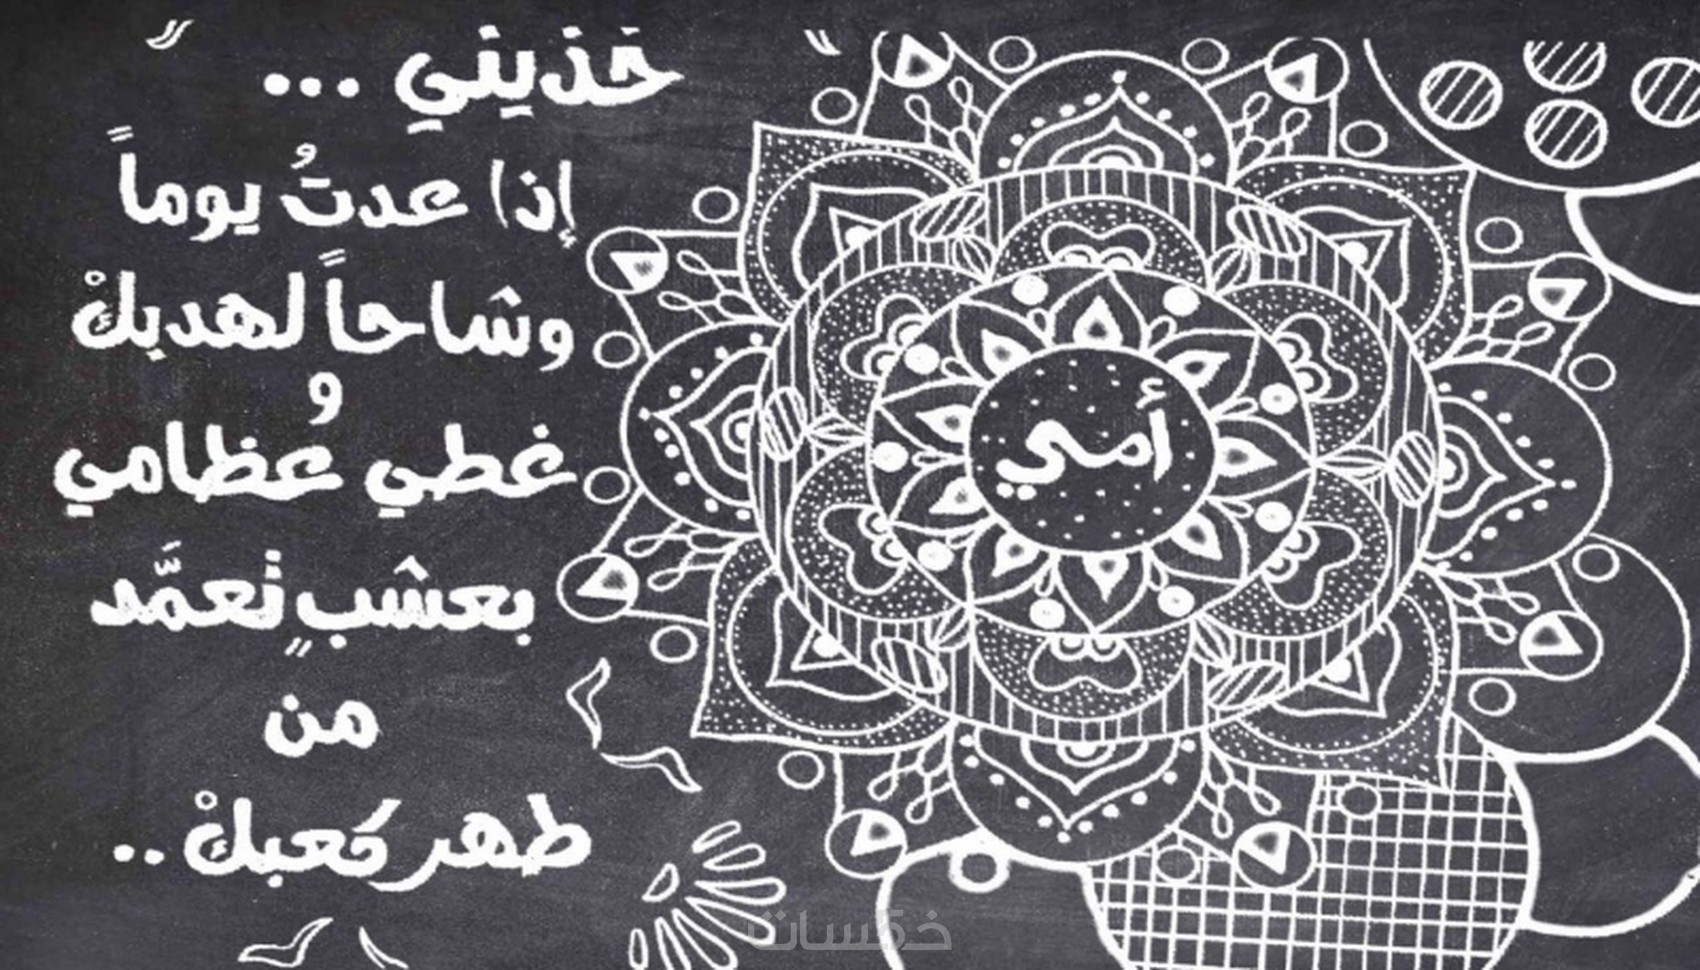 خذيني ...
إذا عدتُ يوماً
وشاحاً لهدبكْ
و
غطي عظامي
بعشبٍ تعمَّد
من
طهر كعبكْ ..
أمي
خمسات